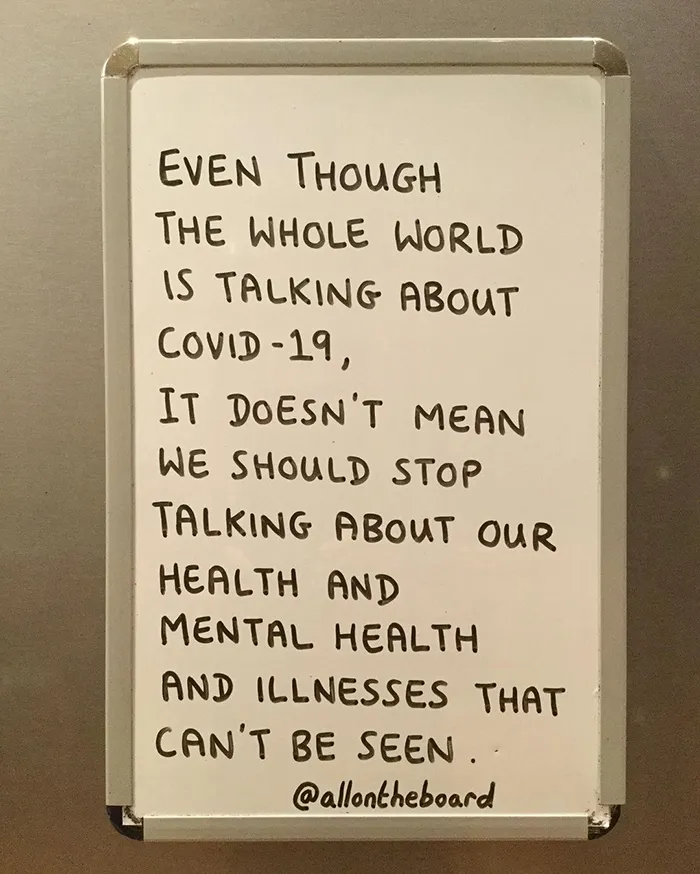 EVEN THOUGH
THE WHOLE WORLD
IS TALKING ABOUT
COVID-19,
IT DOESN'T MEAN
WE SHOULD STOP
TALKING ABOUT OUR
HEALTH AND
MENTAL HEALTH
AND ILLNESSES THAT
CAN'T BE SEEN.
@allontheboard